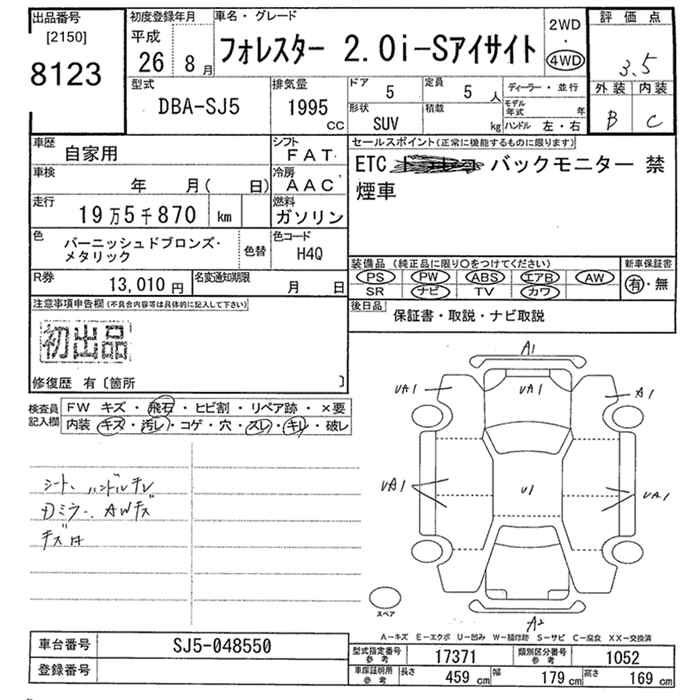 出品番号
[2150]
8123
初度登録年月
平成
26 8月
車名・グレード
フォレスター 2.0i-Sアイサイト
2WD
・
4WD
評価点
3.5
外装 内装
B C
型式
DBA-SJ5
排気量
1995
CC
ドア
5
定員
5 人
形状
SUV
積載
kg
ディーラー・並行
モデル年式 年
ハンドル 左・右
車歴
自家用
シフト
FAT
車検
年 月( 日)
冷房
AAC
走行
19万5千870 km
燃料
ガソリン
色
バーニッシュドブロンズ・
メタリック
色替
色コード
H4Q
R券
13,010円
名変通知期限
月 日
セールスポイント(正常に機能するものに限ります)
ETC バックモニター 禁
煙車
装備品 (純正品に限り○をつけてください)
PS PW ABS エアB AW
SR ナビ TV カワ
新車保証書
有・無
後日品
保証書・取説・ナビ取説
注意事項申告欄(不具合内容等は具体的に記入して下さい)
初出品
修復歴 有〔箇所 〕
検査員
記入欄
FW キズ・飛石・ヒビ割・リペア跡・×要
内装 キズ・汚レ・コゲ・穴・スレ・キレ・破レ
シート、ハンドルテレ
Dミラー、AWキズ
A1
UA1 UA1 A1
UA1 U1 UA1
スペア
A2
A-キズ E-エクボ U-凹み W-補修跡 S-サビ C-腐食 XX-交換済
車台番号
SJ5-048550
登録番号
型式指定番号
参考
17371
類別区分番号
参考
1052
車庫証明用
参考
長さ 459 cm 幅 179 cm 高さ 169 cm